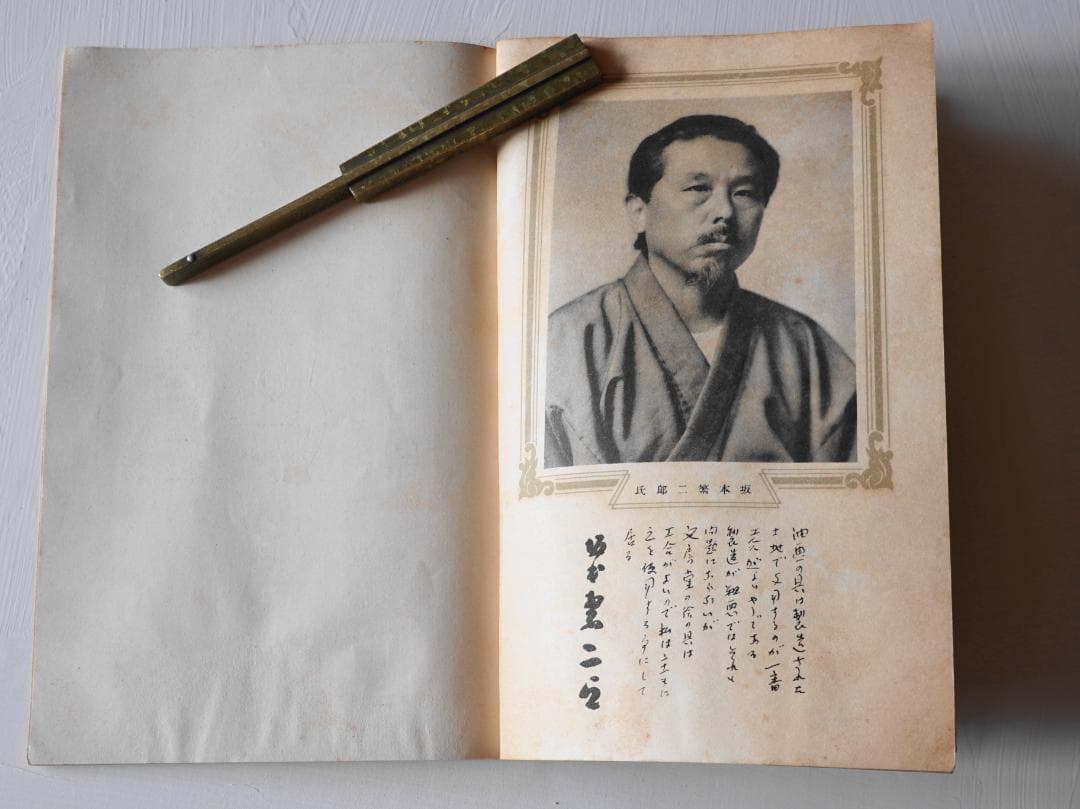 坂本繁二郎氏
油画の具は製造された
土地で使用するのが一番
工合がよいやうである
製造が粗悪では
問題にならないが
文房堂の絵の具は
工合がよいので私は
之を使用する事にして
居る
坂本繁二郎